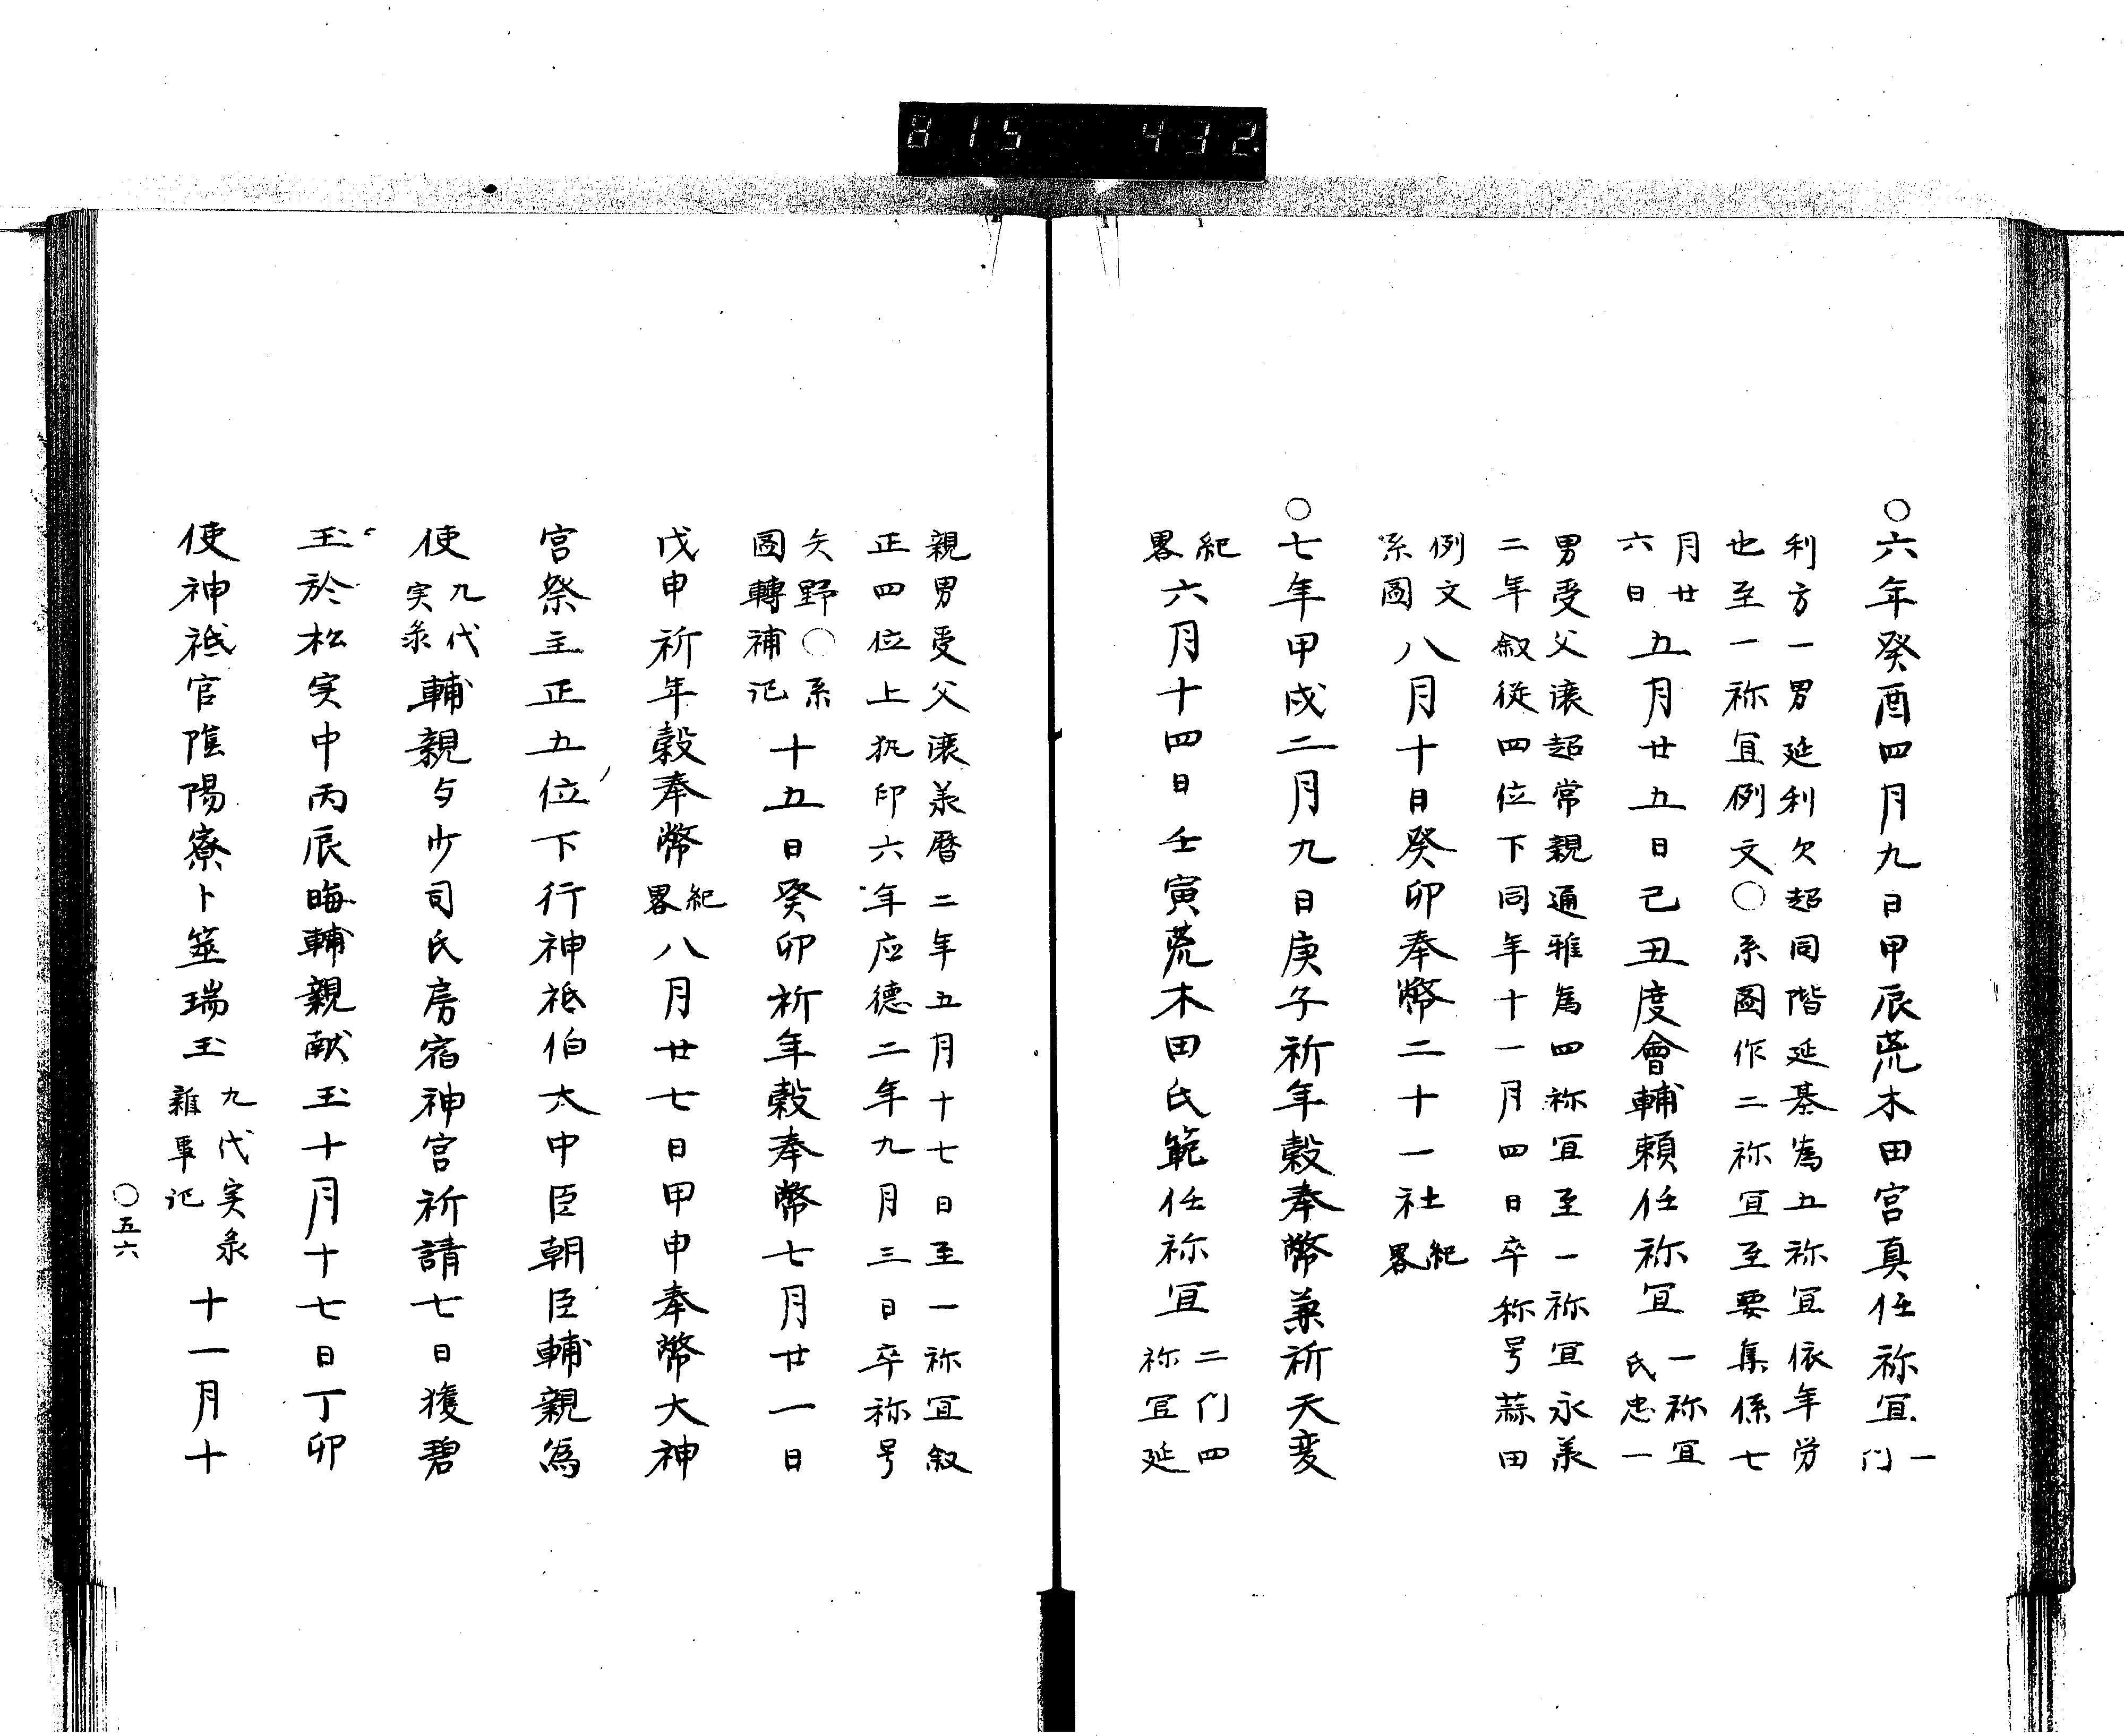 815 432
○六年癸酉四月九日甲辰荒木田宮真任祢宜一
門
利方一男延利欠超同階延基為五祢宜依年労
也至一祢宜例文○系圖作二祢宜至要集係七
月廿
六日
五月廿五日己丑度會輔頼任祢宜
一祢宜
氏忠一
男受父讓超常親通雅為四祢宜至一祢宜永義
二年叙從四位下同年十一月四日卒称号蒜田
例文
系圖
八月十日癸卯奉幣二十一社
紀
畧
○七年甲戌二月九日庚子祈年穀奉幣兼祈天変
紀
畧
六月十四日壬寅荒木田氏範任祢宜
二门四
祢宜延
親男受父讓義暦二年五月十七日至一祢宜叙
正四位上执印六年应德二年九月三日卒称号
矢野○系
圖轉補記
十五日癸卯祈年穀奉幣七月廿一日
戊申祈年穀奉幣
紀
畧
八月廿七日甲申奉幣大神
宮祭主正五位下行神祗伯大中臣朝臣輔親為
使
九代
実录
輔親与少司氏房宿神宮祈請七日獲碧
玉於松実中丙辰晦輔親献玉十月十七日丁卯
使神祗官陰陽寮卜筮瑞玉
九代実录
雜事记
十一月十
○五六